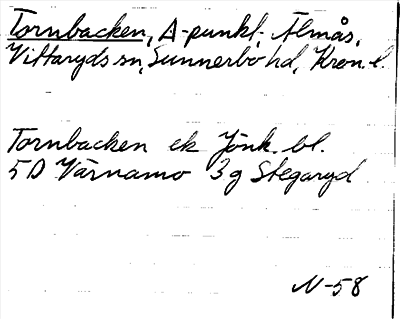 Tornbacken, Δ-punkt, Älmås,
Vittaryds sn, Sunnerbo hd, Kron. l.
Tornbacken ek Jönk. bl.
5D Värnamo 3g Stegaryd
N-58